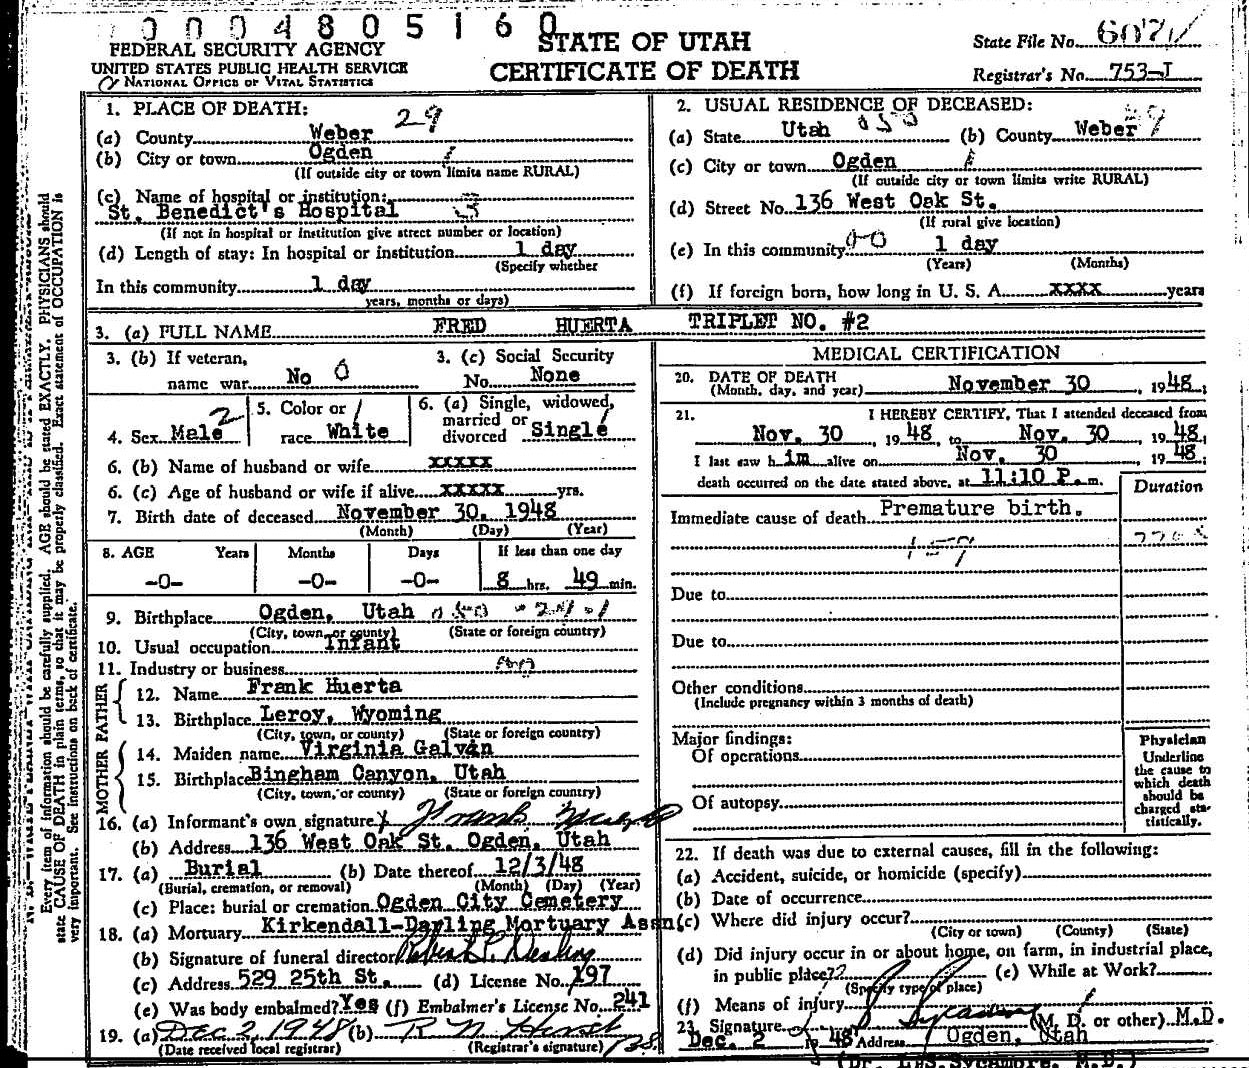 0 0 0 4 8 0 5 1 6 0
FEDERAL SECURITY AGENCY
UNITED STATES PUBLIC HEALTH SERVICE
NATIONAL OFFICE OF VITAL STATISTICS
STATE OF UTAH
CERTIFICATE OF DEATH
State File No.
Registrar's No. 753-I
1. PLACE OF DEATH: 29
(a) County Weber
(b) City or town Ogden
(If outside city or town limits name RURAL)
(c) Name of hospital or institution:
St. Benedict's Hospital 3
(If not in hospital or institution give street number or location)
(d) Length of stay: In hospital or institution 1 day
(Specify whether
In this community 1 day
years, months or days)
2. USUAL RESIDENCE OF DECEASED:
(a) State Utah (b) County Weber
(c) City or town Ogden
(If outside city or town limits write RURAL)
(d) Street No. 136 West Oak St.
(If rural give location)
(e) In this community 1 day
(Years) (Months)
(f) If foreign born, how long in U. S. A. xxxx years
3. (a) FULL NAME FRED HUERTA TRIPLET NO. #2
3. (b) If veteran,
name war No 0
3. (c) Social Security
No. None
4. Sex Male 2
5. Color or
race White
6. (a) Single, widowed,
married or
divorced Single
6. (b) Name of husband or wife xxxxx
6. (c) Age of husband or wife if alive xxxxx yrs.
7. Birth date of deceased November 30, 1948
(Month) (Day) (Year)
8. AGE Years Months Days If less than one day
-0- -0- -0- 8 hrs. 49 min.
9. Birthplace Ogden, Utah
(City, town, or county) (State or foreign country)
10. Usual occupation Infant
11. Industry or business
FATHER
12. Name Frank Huerta
13. Birthplace Leroy, Wyoming
(City, town, or county) (State or foreign country)
MOTHER
14. Maiden name Virginia Galvan
15. Birthplace Bingham Canyon, Utah
(City, town, or county) (State or foreign country)
16. (a) Informant's own signature x Frank Huerta
(b) Address 136 West Oak St. Ogden, Utah
17. (a) Burial (b) Date thereof 12/3/48
(Burial, cremation, or removal) (Month) (Day) (Year)
(c) Place: burial or cremation Ogden City Cemetery
18. (a) Mortuary Kirkendall-Darling Mortuary Assn
(b) Signature of funeral director
(c) Address 529 25th St. (d) License No. 197
(e) Was body embalmed? Yes (f) Embalmer's License No. 241
19. (a) Dec 2, 1948 (b)
(Date received local registrar) (Registrar's signature)
MEDICAL CERTIFICATION
20. DATE OF DEATH
(Month, day, and year) November 30, 1948;
21. I HEREBY CERTIFY, That I attended deceased from
Nov. 30, 1948, to Nov. 30, 1948;
I last saw him alive on Nov. 30, 1948;
death occurred on the date stated above, at 11:10 P. m.
Duration
Immediate cause of death Premature birth.
Due to
Due to
Other conditions
(Include pregnancy within 3 months of death)
Major findings:
Of operations
Of autopsy
Physician
Underline
the cause to
which death
should be
charged sta-
tistically.
22. If death was due to external causes, fill in the following:
(a) Accident, suicide, or homicide (specify)
(b) Date of occurrence
(c) Where did injury occur?
(City or town) (County) (State)
(d) Did injury occur in or about home, on farm, in industrial place,
in public place? (e) While at Work?
(Specify type of place)
(f) Means of injury
23. Signature (M. D. or other) M.D.
Dec. 2 1948 Address Ogden, Utah
(Dr. L.S.Sycamore, M.D.)
Every item of information should be carefully supplied. AGE should be stated EXACTLY. PHYSICIANS should
state CAUSE OF DEATH in plain terms, so that it may be properly classified. Exact statement of OCCUPATION is
very important. See instructions on back of certificate.